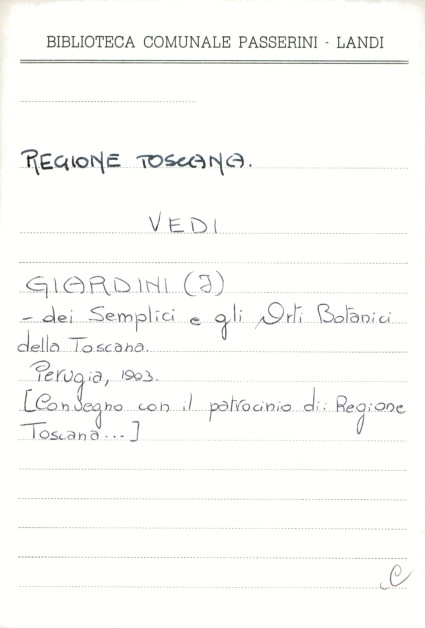 BIBLIOTECA COMUNALE PASSERINI - LANDI
REGIONE TOSCANA.
VEDI
GIARDINI (I)
- dei Semplici e gli Orti Botanici
della Toscana.
Perugia, 1903.
[Convegno con il patrocinio di: Regione
Toscana...]
C